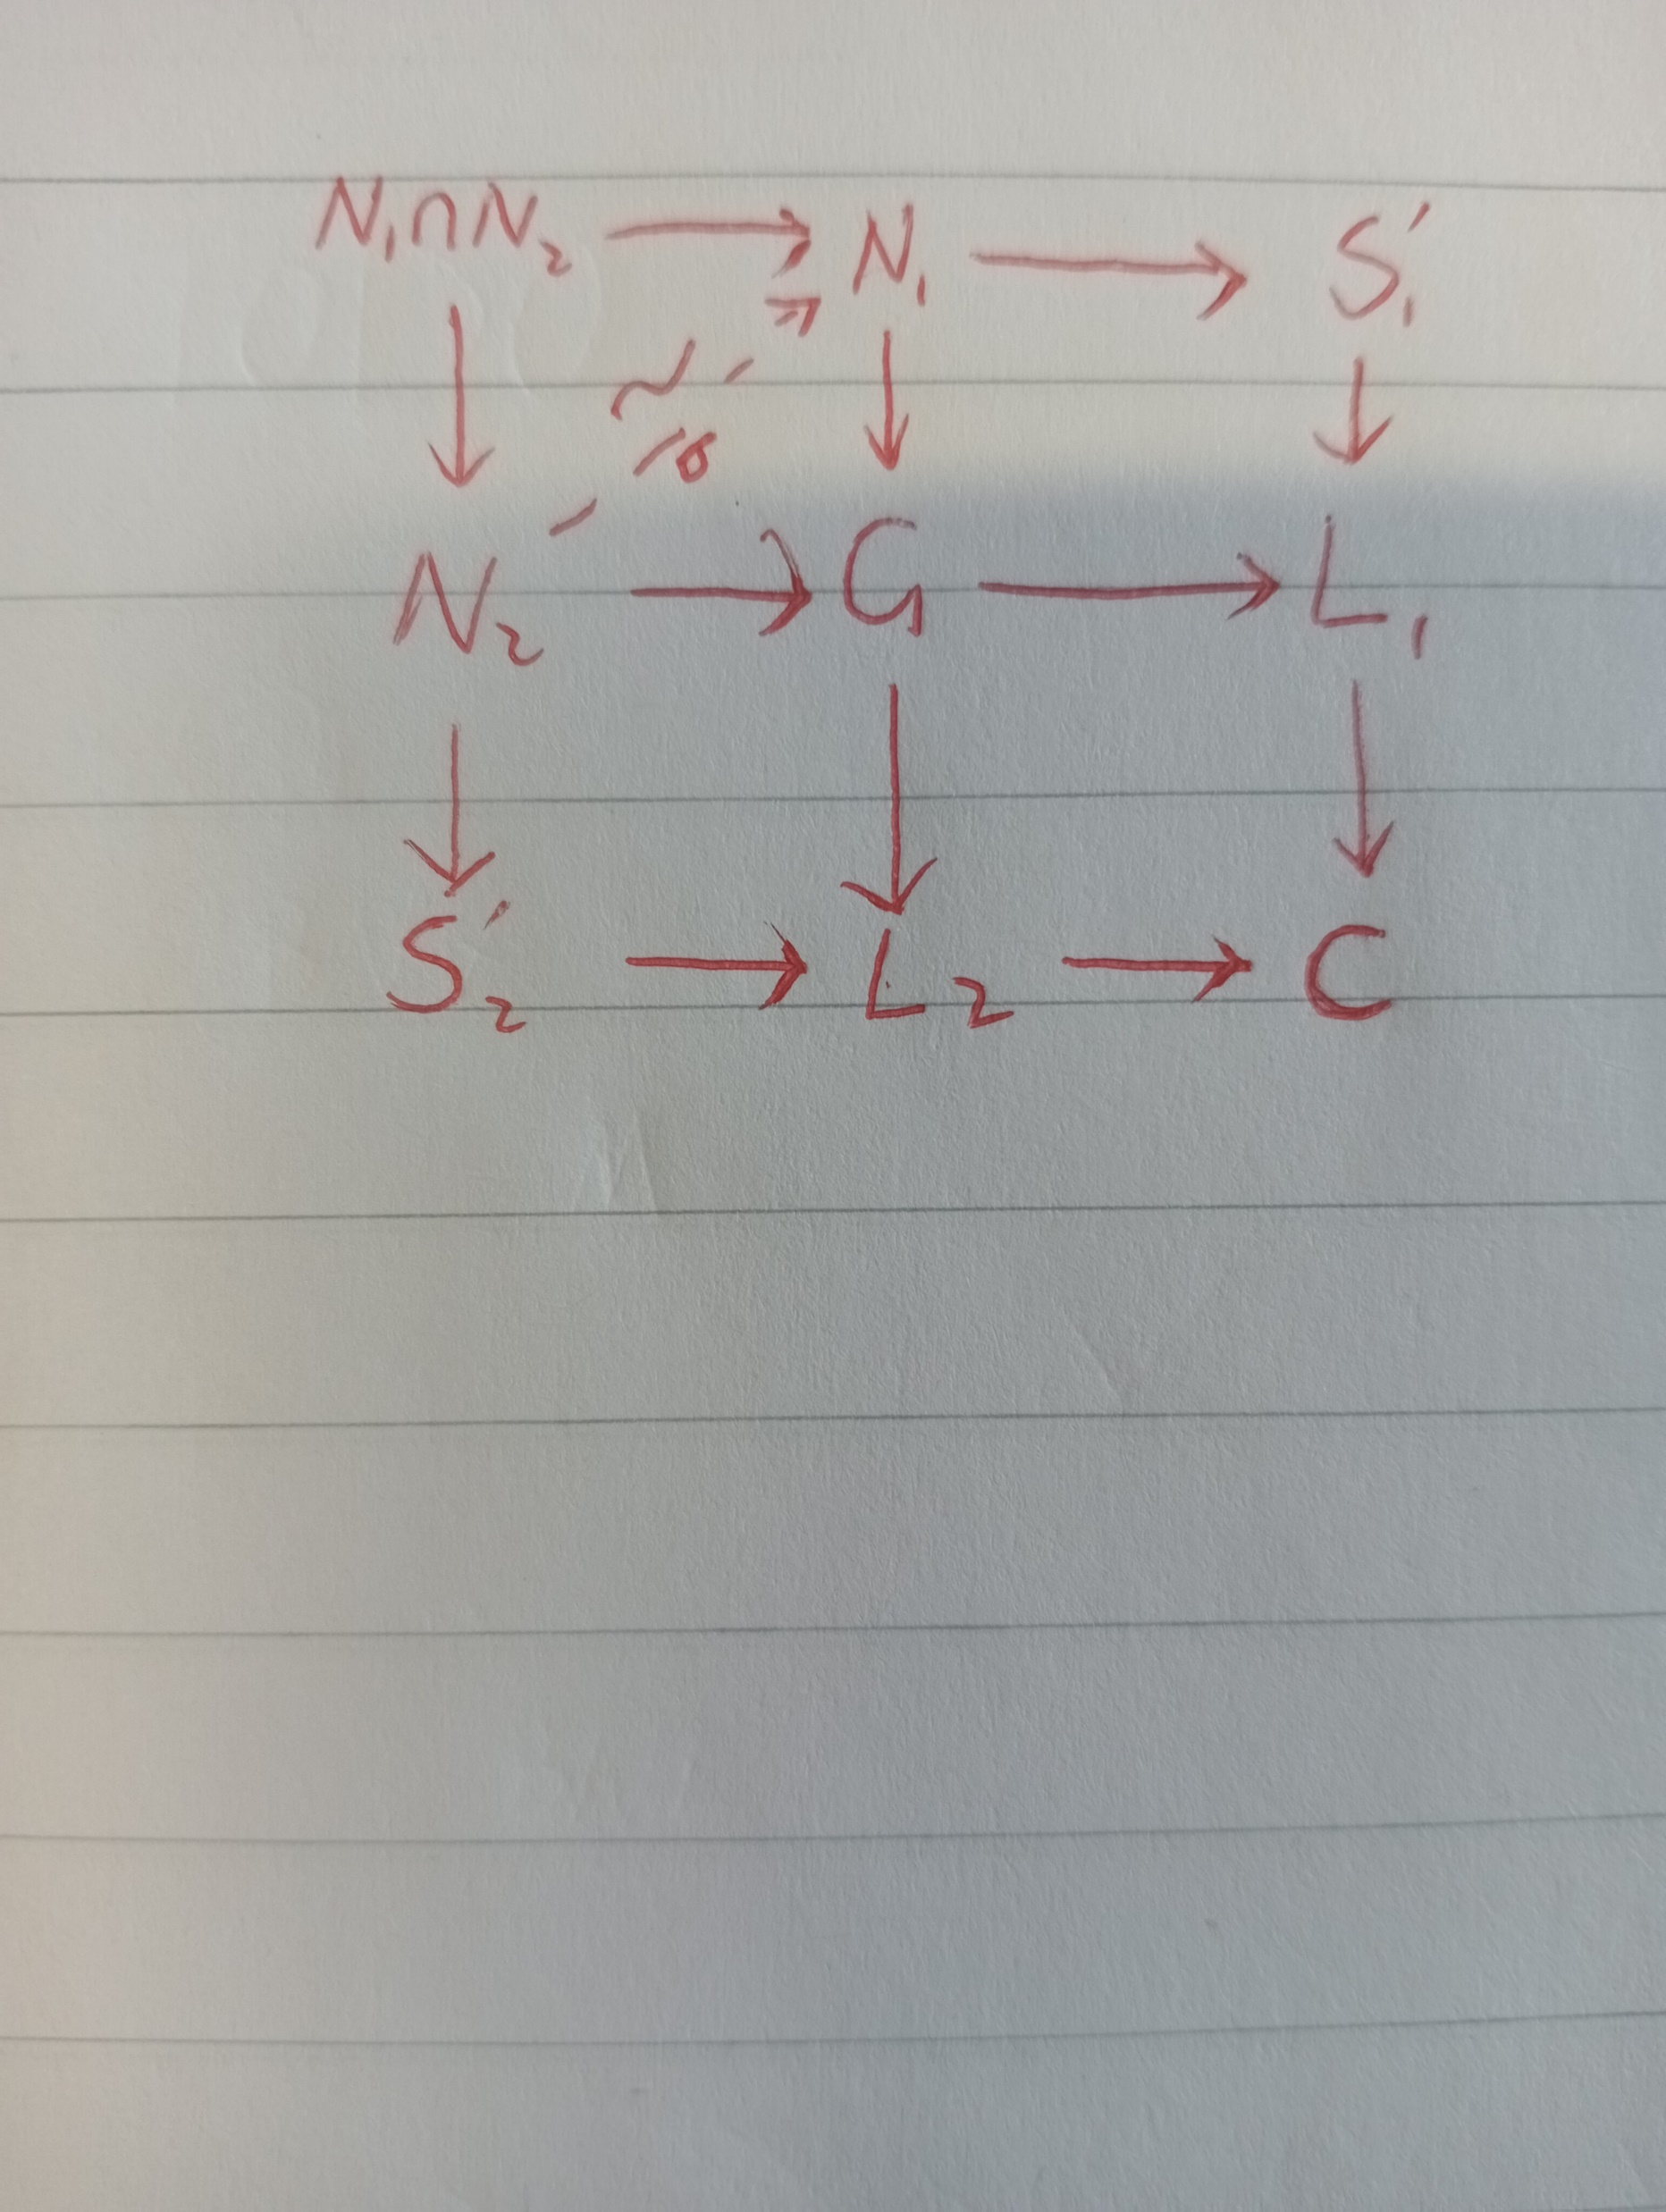 N₁∩N₂ → N₁ → S′₁
↓ ↓ ↓
N₂ → G → L₁
↓ ↓ ↓
S′₂ → L₂ → C